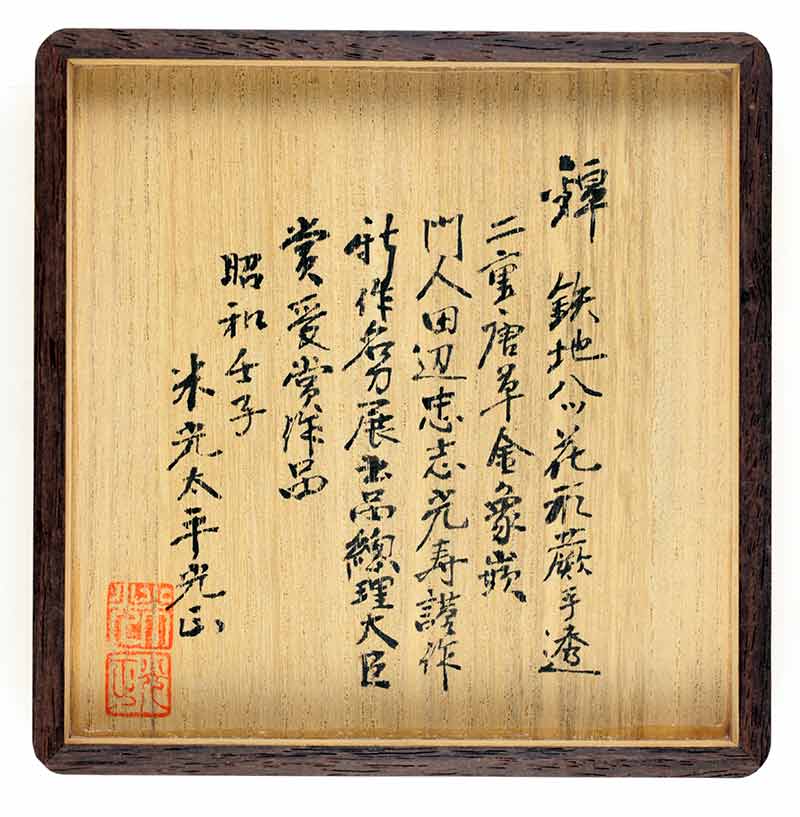 鐔 鉄地八ツ花形蕨手透
二重唐草金象嵌
門人田辺忠志光寿謹作
新作名刀展出品總理大臣
賞受賞作品
昭和壬子
米光太平光正
米光
光正